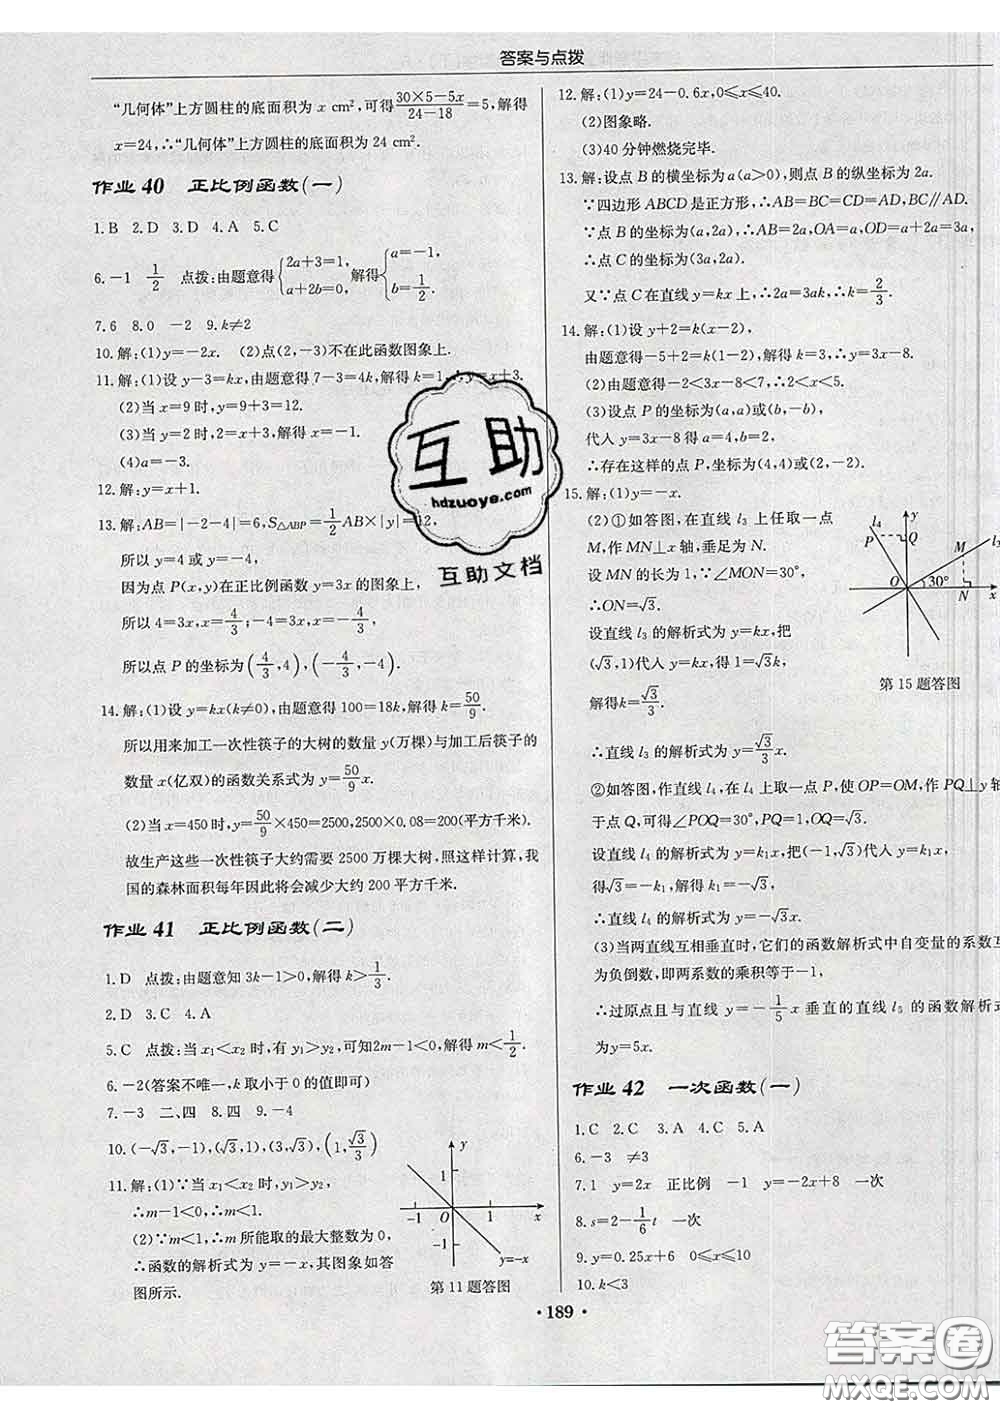 答案与点拨
“几何体”上方圆柱的底面积为 x cm²,可得(30×5-5x)/(24-18)=5,解得
x=24,∴“几何体”上方圆柱的底面积为 24 cm².
作业 40 正比例函数(一)
1.B 2.D 3.D 4.A 5.C
6.-1 1/2 点拨:由题意得{2a+3=1, a+2b=0,解得{a=-1, b=1/2.
7.6 8.0 -2 9.k≠2
10.解:(1)y=-2x. (2)点(2,-3)不在此函数图象上.
11.解:(1)设 y-3=kx,由题意得 7-3=4k,解得 k=1,∴y=x+3.
(2)当 x=9 时,y=9+3=12.
(3)当 y=2 时,2=x+3,解得 x=-1.
(4)a=-3.
12.解:y=x+1.
13.解:AB=|-2-4|=6,S△ABP=1/2 AB×|y|=12,
所以 y=4 或 y=-4.
因为点 P(x,y)在正比例函数 y=3x 的图象上,
所以 4=3x,x=4/3;-4=3x,x=-4/3,
所以点 P 的坐标为(4/3,4),(-4/3,-4).
14.解:(1)设 y=kx(k≠0),由题意得 100=18k,解得 k=50/9.
所以用来加工一次性筷子的大树的数量 y(万棵)与加工后筷子的
数量 x(亿双)的函数关系式为 y=50/9 x.
(2)当 x=450 时,y=50/9×450=2500,2500×0.08=200(平方千米).
故生产这些一次性筷子大约需要 2500 万棵大树,照这样计算,我
国的森林面积每年因此将会减少大约 200 平方千米.
作业 41 正比例函数(二)
1.D 点拨:由题意知 3k-1>0,解得 k>1/3.
2.D 3.C 4.A
5.C 点拨:当 x₁<x₂ 时,有 y₁>y₂,可知2m-1<0,解得 m<1/2.
6.-2(答案不唯一,k 取小于 0 的值即可)
7.-3 二、四 8.四 9.-4
10.(-√3,-1),(√3,1),(3,√3),(1,√3/3)
11.解:(1)∵当 x₁<x₂ 时,y₁>y₂,
∴m-1<0,∴m<1.
(2)∵m<1,∴m 所能取的最大整数为 0,
∴函数的解析式为 y=-x,其图象如答
图所示.
y
1
-1 O 1 x
-1
y=-x
第 11 题答图
12.解:(1)y=24-0.6x,0≤x≤40.
(2)图象略.
(3)40 分钟燃烧完毕.
13.解:设点 B 的横坐标为 a(a>0),则点 B 的纵坐标为 2a.
∵四边形 ABCD 是正方形,∴AB=BC=CD=AD,BC∥AD.
∵点 B 的坐标为(a,2a),∴AB=2a,OA=a,OD=a+2a=3a,
∴点 C 的坐标为(3a,2a).
又∵点 C 在直线 y=kx 上,∴2a=3ak,∴k=2/3.
14.解:(1)设 y+2=k(x-2),
由题意得-5+2=k(1-2),解得 k=3,∴y=3x-8.
(2)由题意得-2<3x-8<7,∴2<x<5.
(3)设点 P 的坐标为(a,a)或(b,-b),
代入 y=3x-8 得 a=4,b=2,
∴存在这样的点 P,坐标为(4,4)或(2,-2).
15.解:(1)y=-x.
(2)①如答图,在直线 l₃ 上任取一点
M,作 MN⊥x 轴,垂足为 N.
设 MN 的长为 1,∵∠MON=30°,
∴ON=√3.
设直线 l₃ 的解析式为 y=kx,把
(√3,1)代入 y=kx,得 1=√3k,
解得 k=√3/3.
∴直线 l₃ 的解析式为 y=√3/3 x.
y
l₄ P Q
M l₃
O 30° N x
第 15 题答图
②如答图,作直线 l₄,在 l₄ 上取一点 P,使 OP=OM,作 PQ⊥y 轴
于点 Q,可得∠POQ=30°,PQ=1,OQ=√3.
设直线 l₄ 的解析式为 y=k₁x,把(-1,√3)代入 y=k₁x,
得√3=-k₁,解得 k₁=-√3,
∴直线 l₄ 的解析式为 y=-√3x.
(3)当两直线互相垂直时,它们的函数解析式中自变量的系数互
为负倒数,即两系数的乘积等于-1,
∴过原点且与直线 y=-1/5 x 垂直的直线 l₅ 的函数解析式
为y=5x.
作业 42 一次函数(一)
1.C 2.C 3.A 4.C 5.A
6.-3 ≠3
7.1 y=2x 正比例 -1 y=-2x+8 一次
8.s=2-1/6 t 一次
9.y=0.25x+6 0≤x≤10
10.k<3
• 189 •
互助
hdzuoye.com
互助文档
答案圈
MXQE.COM